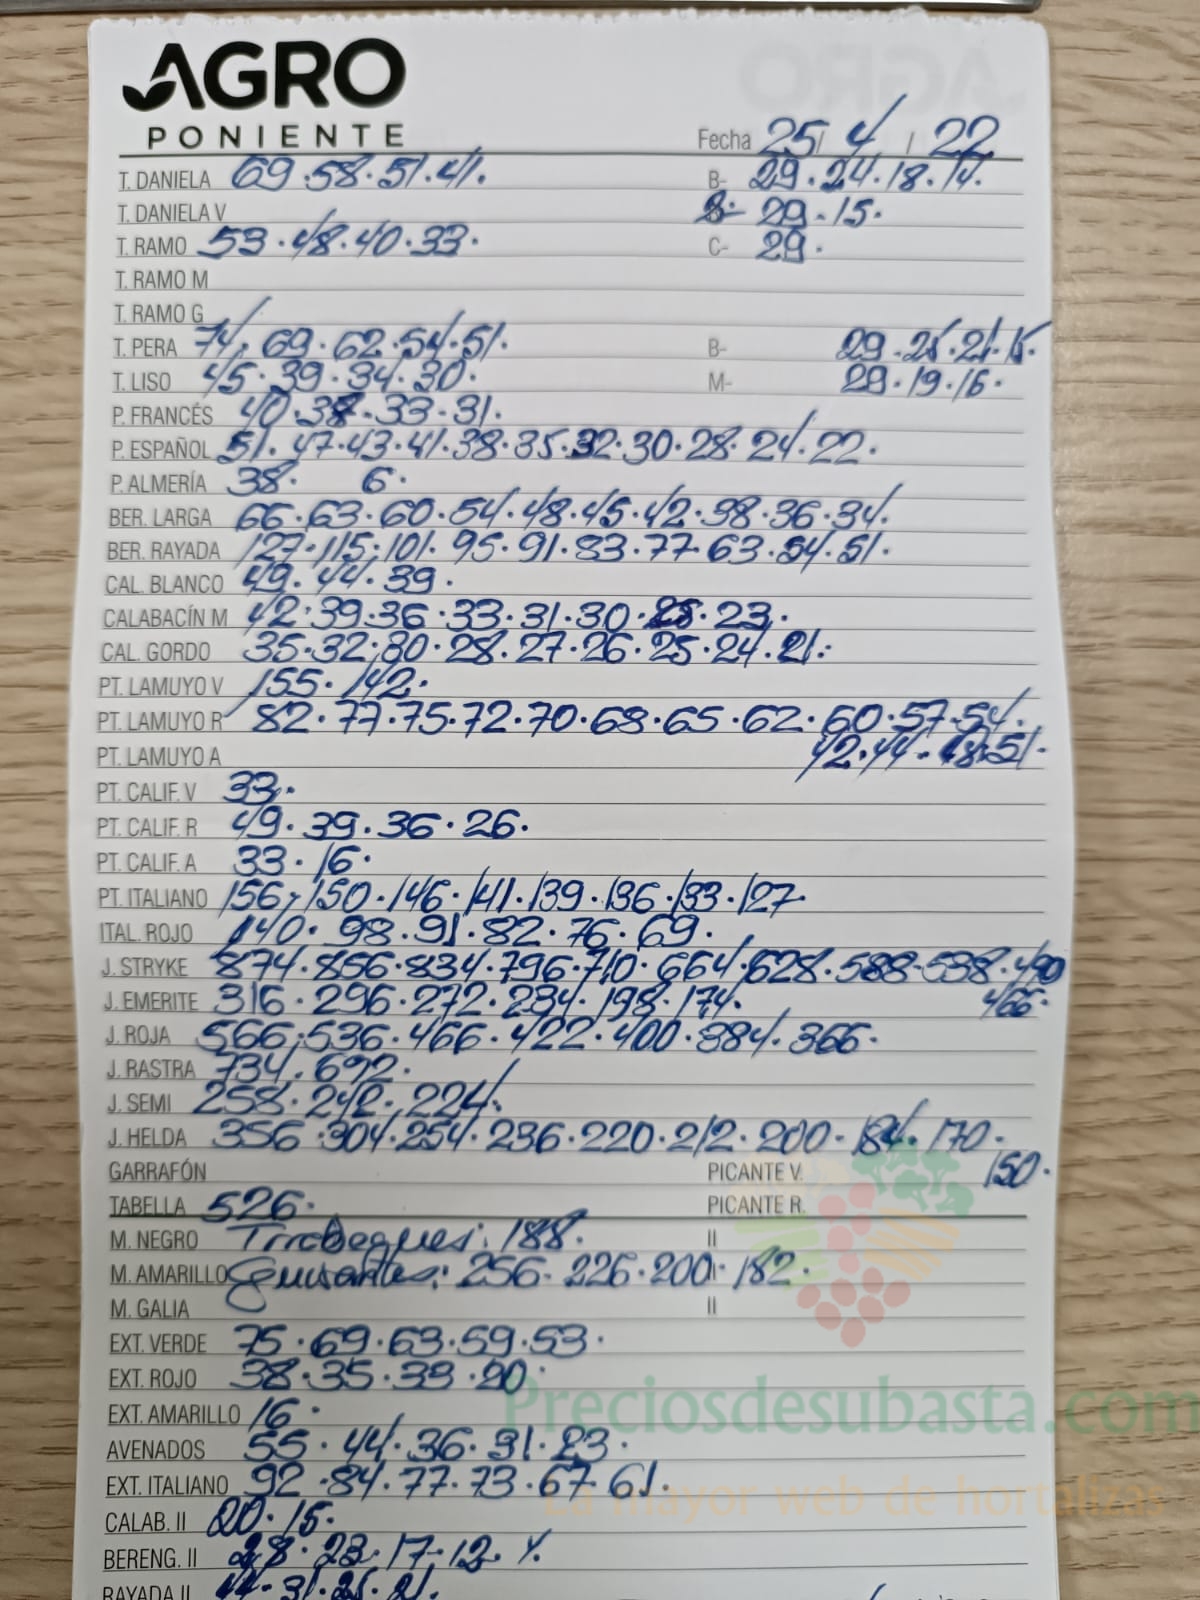 AGRO
PONIENTE
Fecha 25/ 4 / 22
T. DANIELA 69.58.51.41. B- 29.24.18.14.
T. DANIELA V B- 29.15.
T. RAMO 53.48.40.33. C- 29.
T. RAMO M
T. RAMO G
T. PERA 74.69.62.54.51. B- 29.25.21.15.
T. LISO 45.39.34.30. M- 29.19.16.
P. FRANCÉS 40.37.33.31.
P. ESPAÑOL 51.47.43.41.38.35.32.30.28.24.22.
P. ALMERÍA 38. 6.
BER. LARGA 66.63.60.54.48.45.42.38.36.34.
BER. RAYADA 127.115.101.95.91.83.77.63.54.51.
CAL. BLANCO 49.44.39.
CALABACÍN M 42.39.36.33.31.30.25.23.
CAL. GORDO 35.32.30.28.27.26.25.24.21.
PT. LAMUYO V 155.142.
PT. LAMUYO R 82.77.75.72.70.68.65.62.60.57.54.
PT. LAMUYO A 42.44.48.51.
PT. CALIF. V 33.
PT. CALIF. R 49.39.36.26.
PT. CALIF. A 33.16.
PT. ITALIANO 156.150.146.141.139.136.133.127.
ITAL. ROJO 140.98.91.82.76.69.
J. STRYKE 874.856.834.796.710.664.628.588.538.490
J. EMERITE 316.296.272.234.198.174. 466.
J. ROJA 566.536.466.422.400.384.366.
J. RASTRA 734.692.
J. SEMI 258.242.224.
J. HELDA 356.304.254.236.220.212.200.184.170.
GARRAFÓN PICANTE V. 150.
TABELLA 526. PICANTE R.
M. NEGRO Tirabeques: 188. II
M. AMARILLO Guisantes: 256.226.200.182.
M. GALIA II
EXT. VERDE 75.69.63.59.53.
EXT. ROJO 38.35.33.20.
Preciosdesubasta.com
EXT. AMARILLO 16.
AVENADOS 55.44.36.31.23.
EXT. ITALIANO 92.84.77.73.67.61.
La mayor web de hortalizas
CALAB. II 20.15.
BERENG. II 28.23.17.12.
RAYADA II 44.31.25.21.